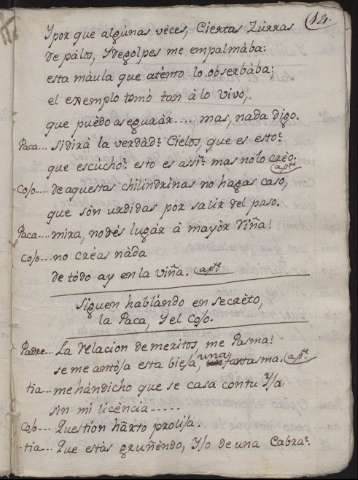 14.
Y por que algúnas véces, Ciertas Zúrras
de pálto, Y de golpes me empalmába:
esta máula que aténto lo obserbába;
el exemplo tomó tan à lo vivo,
que puédo asegurár.... mas, nada digo.
Paca... Si dirà la verdád? Cielos, que es esto?
que escúcho? esto es assi? mas no lo créo; ap.te
Coso.. de aquestas chilindrinas no hagas cáso,
que són urdidas por salir del paso.
Paca... mira, no dés lugár à mayór Viña!
Coso... no créas náda
de tódo ay en la viña. ap.te
Siguen habiándo en secréto,
la Paca, y el Coso.
Padre... La relacion de meritos, me Pasma!
se me antója esta bieja una fantasma. ap.te
tia... me hán dicho que se casa con tu Yja
sin mi licéncia.....
Cab... Question hárto prolija.
tia... Que estás gruñéndo, Yjo de una Cabra?